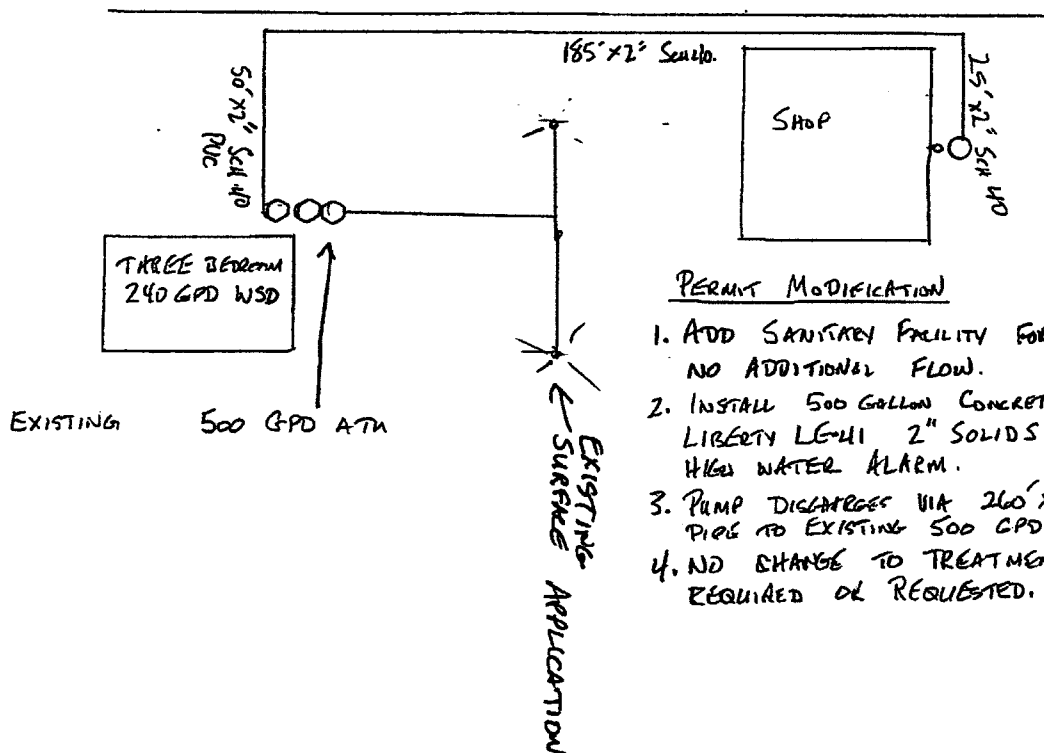 185' X 2" SCH 40.
50' X 2" SCH 40
PVC
25' X 2" SCH 40
SHOP
THREE BEDROOM
240 GPD WSD
EXISTING 500 GPD ATU
EXISTING
SURFACE APPLICATION
PERMIT MODIFICATION
1. ADD SANITARY FACILITY FOR
NO ADDITIONAL FLOW.
2. INSTALL 500 GALLON CONCRET
LIBERTY LE-41 2" SOLIDS
HIGH WATER ALARM.
3. PUMP DISCHARGES VIA 260' X
PIPE TO EXISTING 500 GPD
4. NO CHANGE TO TREATME
REQUIRED OR REQUESTED.